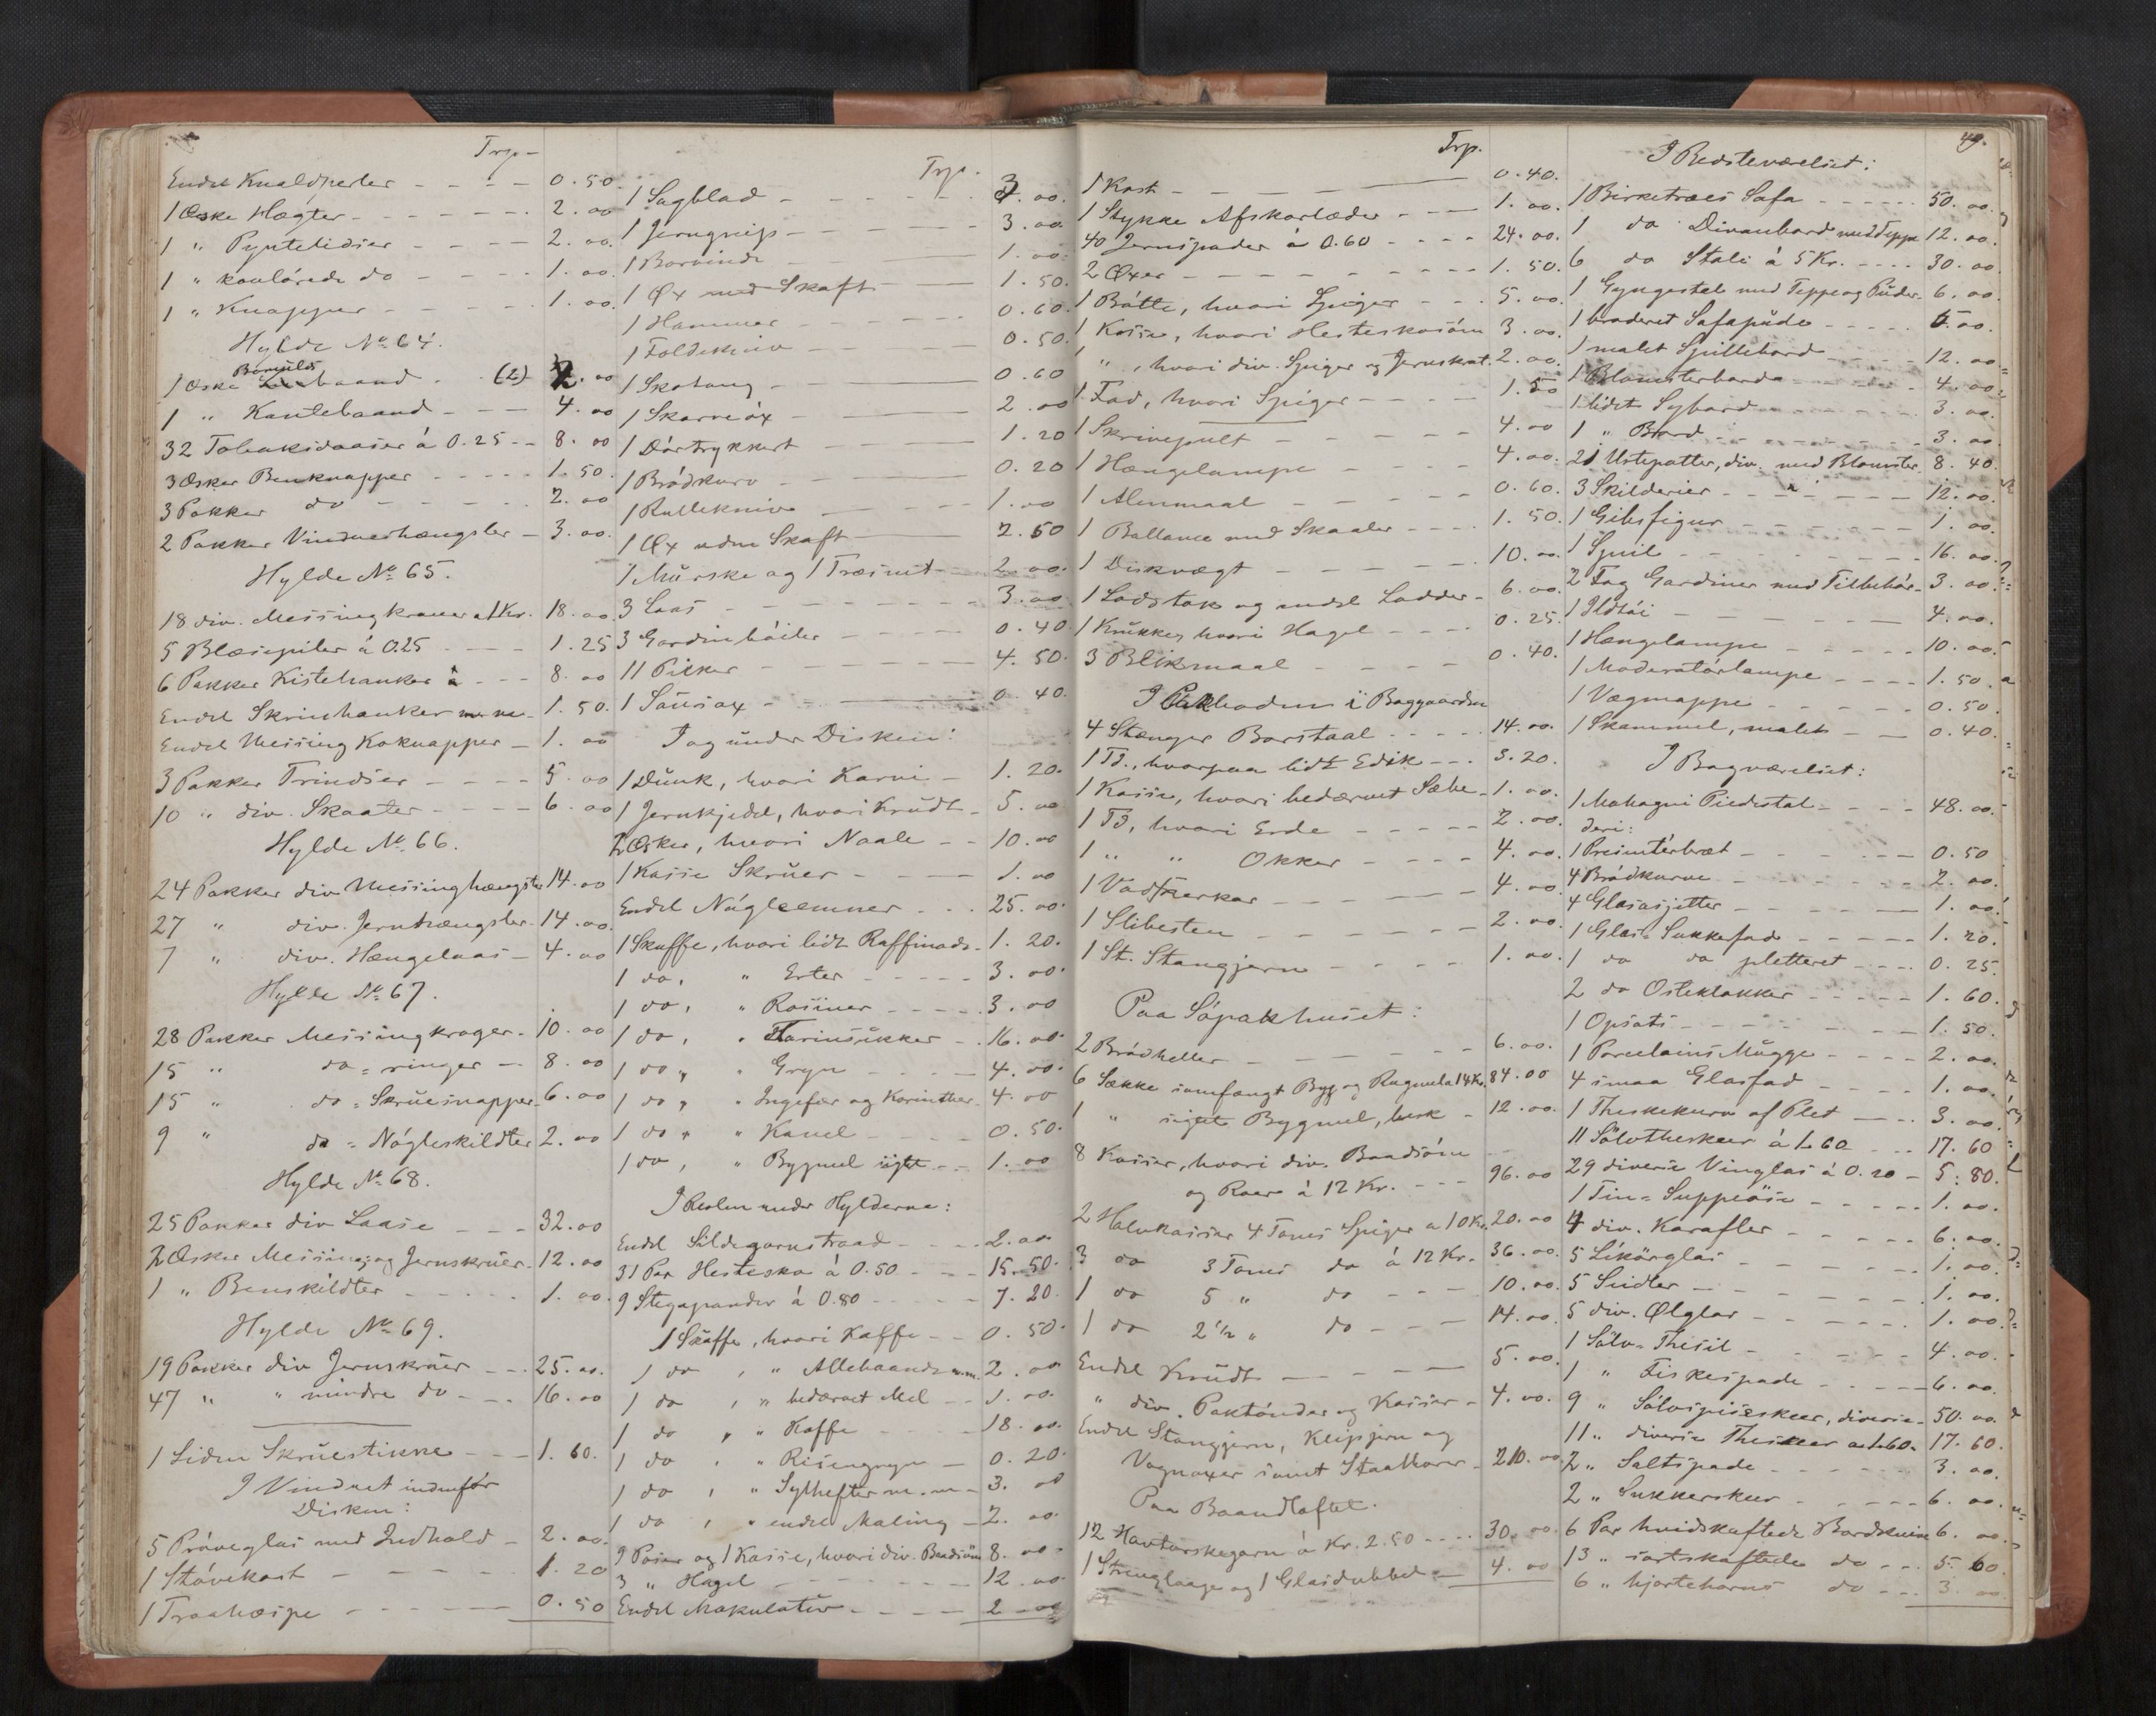 Trp-
Endel Knaldperler - - - - 0.50.
1 Æske Hægter - - - - - - 2.00
1 " Pyntelidser - - - - 2.00.
1 " koulørede do - - - - 1.00.
1 " Knapper - - - - - 1.00.
Hylde No 64.
Bomulds
1 Æske baand . . (2) 2.00
1 " Kantebaand - - - 4.00
32 Tobaksdaaser á 0.25 - - 8.00
3 Æsker Benknapper - - - - 1.50.
3 Pakker do - - - - - - 2.00
2 Pakker Vindueshængsler - 3.00.
Hylde No 65.
18 div. Messingkraner á 1 Kr. 18.00
5 Blæsepiler á 0.25 - - - - 1.25
6 Pakker Kistehanker á - - - 8.00
Endel Skrinhanker m.m. - 1.50.
Endel Messing Koknapper - 1.00
3 Pakker Trindser - - - - 5.00
10 " div. Skaater - - - - 6.00
Hylde No 66.
24 Pakker div Messinghængsler 14.00
27 " div. Jernhængsler - 14.00.
7 " div. Hængelaas - 4.00
Hylde No 67.
28 Pakker Messingkroger - 10.00
15 " do = ringer - - 8.00
15 " do = Skruesnapper - 6.00
9 " do = Nøgleskildter 2.00
Hylde No 68.
25 Pakker div Laase - - - 32.00
2 Æsker Messing og Jernskruer - 12.00
1 " Benskildter - - - - - 1.00.
Hylde No 69.
19 Pakker div Jernskruer - - - 25.00.
47 " " mindre do - - - 16.00
1 Liden Skruestikke - - - 1.60.
I Vinduet indenfor
Disken:
5 Prøveglas med Indhold - 2.00.
1 Støvekost - - - - - 1.20
1 Traahæspe - - - - - 0.50
Trp.
1 Sagblad - - - - - - 3.00.
1 Jerngreip - - - - - 3.00
1 Borvinde - - - 1.00.
1 Øx med Skaft - - - 1.50.
1 Hammer - - - - - - 0.60.
1 Foldekniv - - - - - 0.50.
1 Skotang - - - 0.60
1 Skarveøx - - - 2.00
1 Dørtrykkert - - - 1.20
1 Brødkurv - - - 0.20
1 Rullekniv - - - 1.00
1 Øx uden Skaft - - - 2.50
1 Murske og 1 Træsnit - - 2.00.
3 Laas - - - - - - - 3.00
3 Gardinbøiler - - - - 0.40
11 Pilker - - - - - - - 4.50.
1 Sausax - - - 0.40.
I og under Disken:
1 Dunk, hvori Karve - 1.20.
1 Jernkjedel, hvori Krudt - 5.00
2 Æsker, hvori Naale - - 10.00
1 Kasse Skruer - - - - 1.00
Endel Nøgleemner - - - 25.00.
1 Skuffe, hvori lidt Raffinade - 1.20.
1 do, " Erter - - - - - 3.00.
1 do, " Rosiner - - - - - 3.00
1 do, " Farinsukker - - 16.00.
1 do, " Gryn - - - - 4.00.
1 do, " Ingefær og Korinther - 4.00
1 do, " Kanel - - - - 0.50.
1 do, " Bygmel sigtet - - 1.00
I Reolen under Hylderne:
Endel Sildegarnstraad - - - 2.00
31 Par Hestesko á 0.50 - - - 15.50.
9 Stegepander á 0.80 - - - - - 7.20.
1 Skuffe, hvori Kaffe - - 0.50.
1 do , " Allehaande m.m. 2.00
1 do , " bedærvet Mel - - 1.00.
1 do , " Kaffe - - - - 18.00.
1 do , " Risengryn - 0.20.
1 do , " Sylhefter m.m. - 3.00
1 do , " endel Maling - 2.00
9 Poser og 1 Kasse, hvori div. Baadsøm 8.00.
3 " Hagel - - - - - - - 12.00
Endel Makulatur - - - - 2.00
Trp.
1 Kost - - - 0.40.
1 Stykke Afskarlæder - - - 1.00.
40 Jernspader á 0.60 - - - - 24.00.
2 Øxer - - - - - - - - - 1.50.
1 Bøtte, hvori Spiger - - - 5.00.
1 Kasse, hvori Hesteskosøm 3.00.
" , hvori div. Spiger og Jernskrot. 2.00.
1 Fad, hvori Spiger - - - - 1.50
1 Skrivepult - - - - - 4.00
1 Hængelampe - - - - 4.00.
1 Alenmaal - - - - - 0.60.
1 Ballance med Skaaler - - - - 1.50.
1 Diskvægt - - - - - - - 10.00.
1 Ladstok og endel Ladder - 6.00.
1 Krukke, hvori Hagel - - - - 0.25.
3 Blikmaal - - - - - 0.40.
I Pakboden i Baggaarden
4 Stænger Borstaal - - - - - 14.00.
1 Td., hvorpaa lidt Edik - - - 3.20.
1 Kasse, hvori bedærvet Sæbe - 1.00.
1 Td, hvori Erde - - - - - 2.00.
1 " " Okker - - - - 4.00.
1 Vadmerkar - - - - 4.00.
1 Slibesten - - - - - - - 2.00.
1 St. Stangjern - - - - 1.00.
Paa Søpakhuset:
2 Brødheller - - - - - - - 6.00.
6 Sække samfængt Byg og Rugmel á 14 Kr. 84.00
1 " sigtet Bygmel, besk - 12.00.
8 Kasser, hvori div. Baadsøm
og Roer á 12 Kr. - - - 96.00
2 Halvkasser 4 Toms Spiger á 10 Kr. 20.00
3 do 3 Toms do á 12 Kr. - 36.00.
1 do 5 " do - - - 10.00.
1 do 2 1/2 " do - - - 14.00.
Endel Krudt - - - - - 5.00.
" div. Paktønder og Kasser - 4.00.
Endel Stangjern, Klipjern og
Vognaxer samt Staalkorer - 210.00
Paa Baandloftet.
12 Havtorskegarn á Kr. 2.50 - - - - 30.00.
1 Stringlaage og 1 Glasdubbel - 4.00
49.
I Bedsteværelset:
1 Birketræes Safa - - - - - - 50.00
1 do Divanbord med Teppe 12.00.
6 do Stole á 5 Kr. - - - - 30.00.
1 Gyngestol med Teppe og Puder - 6.00.
1 broderet Safapude - - - - - 5.00.
1 malet Spillebord - - - - 12.00
1 Blomsterbord - - - - - 4.00.
1 lidet Sybord - - - - - - 3.00.
1 " Bord - - - - - - - 3.00.
21 Urtepotter, div. med Blomster 8.40.
3 Skilderier - - - - - - - 12.00.
1 Gibsfigur - - - - - - - 1.00.
1 Speil - - - - - - - - 16.00
2 Fag Gardiner med Tilbehør - 3.00
1 Ildtøi - - - 4.00.
1 Hængelampe - - - - - 10.00.
1 Moderatørlampe - - - - 1.50.
1 Vægmappe - - - - - - 0.50.
1 Skammel, malet - - 0.40.
I Bagværelset:
1 Mahagni Piedestal - - - - 48.00.
deri:
1 Presenterbræt - - - - - 0.50
4 Brødkurve - - - - - - 2.00.
4 Glasasjetter - - - - - 1.00.
1 Glas-Sukkefad - - - - - 1.20.
1 do do pletteret - - - 0.25.
2 do Osteklokker - - - - - 1.60.
1 Opsats - - - - - - - 1.50.
1 Porcelains Mugge - - - - 2.00.
4 smaa Glasfad - - - 1.00.
1 Theskekurv af Plet - - 3.00.
11 Sølvtheskeer á 1.60 - - - 17.60
29 diverse Vinglas á 0.20 - 5.80.
1 Tin-Suppeøse - - - - - 1.00.
4 div. Karafler - - - - - 6.00.
5 Likørglas - - - - - - 1.00
5 Seidler - - - - - - - 1.00.
5 div. Ølglas - - - - - - 1.00.
1 Sølv-Thesil - - - - - 4.00.
1 " Fiskespade - - - - - 6.00.
9 " Sølvspiseskeer, diverse - 50.00.
11 " diverse Theskeer á 1.60. 17.60.
2 " Saltspade - - - - - - 3.00.
2 " Sukkerskeer - - - - - 6.00.
6 Par hvidskaftede Bordknive 6.00.
13 " sortskaftede do - - - 5.60
6 " hjortehorns do - - - 3.00